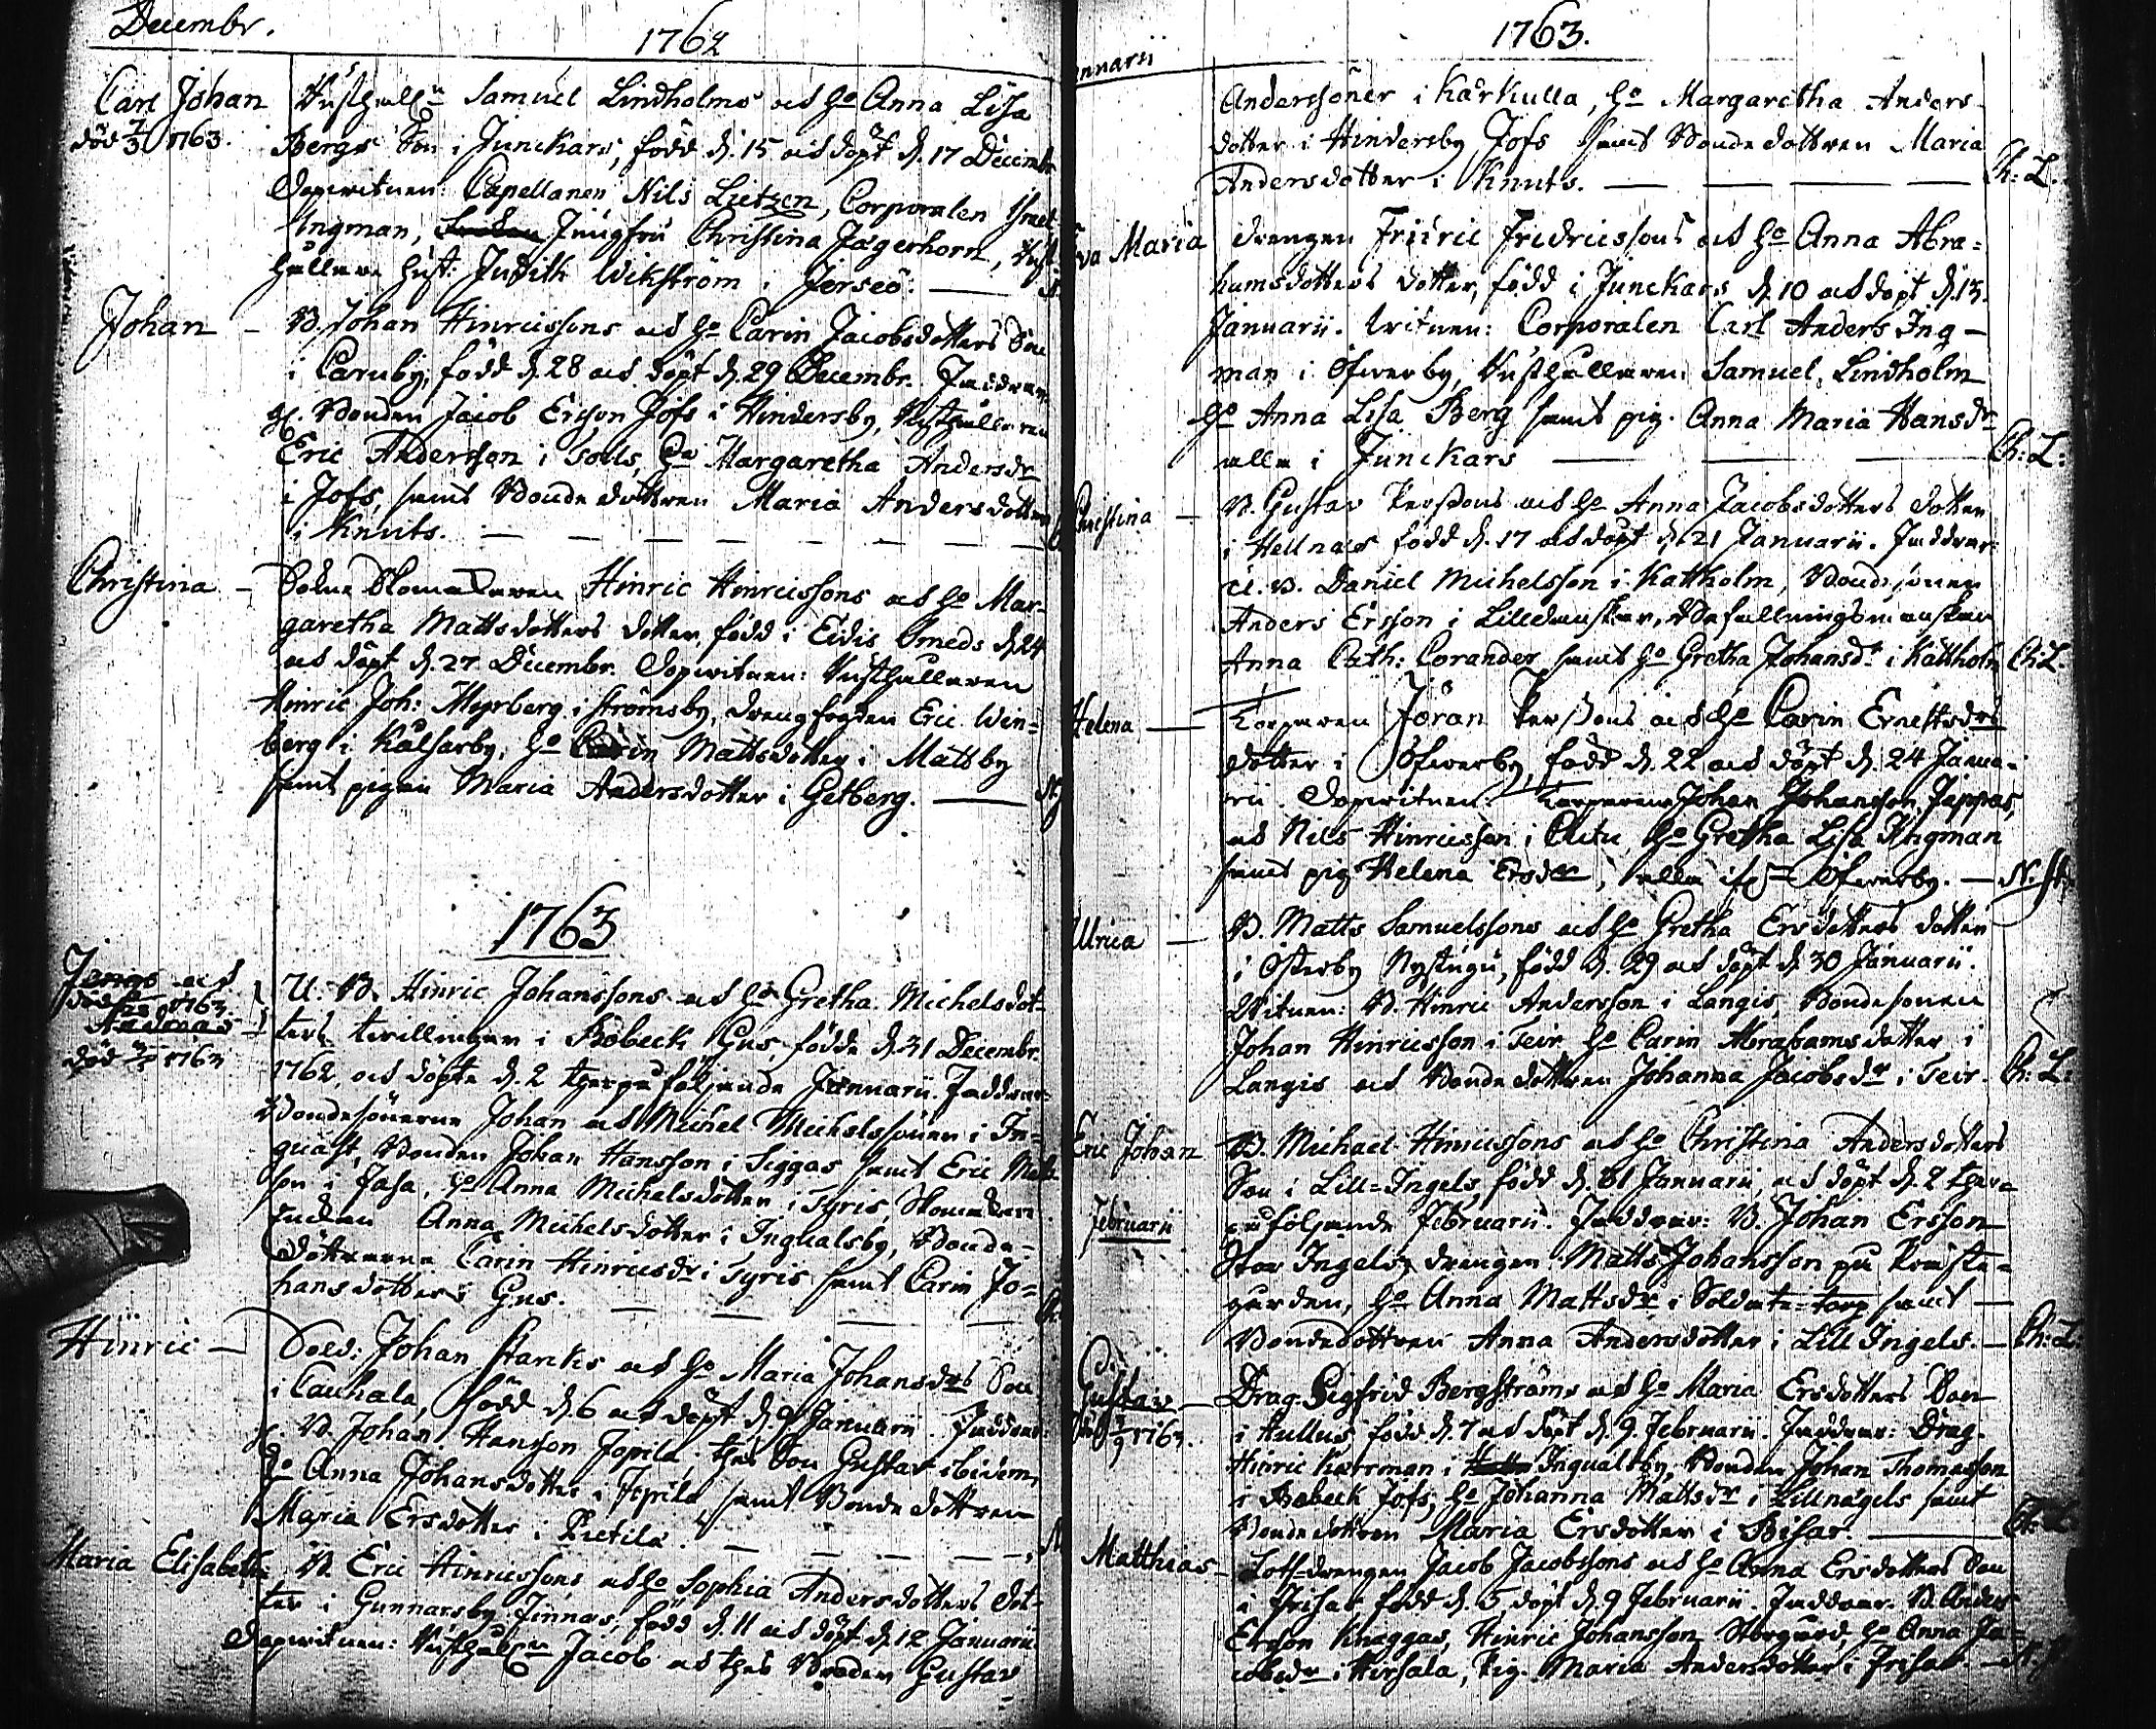 Decembr.
1762
Carl Johan
död 7/3 1763.
Rusthåll:n Samuel Lindholms och h:o Anna Lisa
Bergs Son i Junckars, född d. 15 och döpt d. 17 Decembr
Dopwitnen: Capellanen Nils Lietzen, Corporalen
Ingman, Jungfru Christina Jägerhorn, Rust
hållare hust: Judith Wikström i Jorfeö.
Johan
B. Johan Hinricssons och h:o Carin Jacobsdotters Son
i Caruby, född d. 28 och döpt d. 29 Decembr. Faddrar
Bonden Jacob Ersson Jofs i Hindersby, Rusthållaren
Eric Andersson i Tolls, h:o Margaretha Andersdr
i Jofs, samt Bondedottren Maria Andersdotter
i Knuts.
Christina
Hinric Hinricssons och h:o Mar-
garetha Mattsdotters dotter, född i Eidis Smeds d. 24
och döpt d. 27 Decembr. Dopwitnen: Rusthållaren
Hinric Joh: Myrberg i Strömsby, drengfogden Eric Win-
berg i Kålsarby, h:o Carin Mattsdotter i Matsby
samt pigan Maria Andersdotter i Getberg.
1763
Jonas och
död 1763
Andreas
död 1763
U. B. Hinric Johanssons och h:o Gretha Michelsdot-
ters twillingar i Bobeck Gus, födde d. 31 Decembr.
1762, och döpte d. 2 therpåföljande Januarii. Faddrar
Bondesönerne Johan och Michel Michelssöner i In-
gvast, Bonden Johan Hansson i Siggas samt Eric Matts
son i Jasa, h:o Anna Michelsdotter i Tyris,
Enckan Anna Michelsdotter i Ingvalsby, Bonde-
döttrarne Carin Hinricsdr i Tyris samt Carin Jo-
hansdotter i Gus.
Hinric
Sold: Johan Starcks och h:o Maria Johansdrs Son
i Cauhala, född d. 6 och döpt d. 9 Januarii. Faddrar:
B. Johan Hansson Fopila, thes Son Gustav ibidem,
h:o Anna Johansdotter i Fopila samt Bondedottren
Maria Ersdotter i Pietilä.
Maria Elisabeth
B. Eric Hinricssons och h:o Sophia Andersdotters dot-
ter i Gunnarsby Finnas, född d. 11 och döpt d. 12 Januarii
Dopwitnen: Rusthåll:n Jacob och thes Broder Gustav
1763.
Januarii
Anderssöner i Kårkulla, h:o Margaretha Anders-
dotter i Hindersby Jofs samt Bondedottren Maria
Andersdotter i Knuts. Ch: L.
Eva Maria
drengen Fridric Fridricssons och h:o Anna Abra-
hamsdotters dotter, född i Junckars d. 10 och döpt d. 13.
Januarii. Witnen: Corporalen Carl Anders Ing-
man i Öfwerby, Rusthållaren Samuel Lindholm
h:o Anna Lisa Berg samt pig. Anna Maria Hansdr
alla i Junckars Ch: L:
Christina
B. Gustav Perssons och h:o Anna Jacobsdotters dotter
i Hellnäs född d. 17 och döpt d. 21 Januarii. Faddrar:
U. B. Daniel Michelsson i Kattholm, Bondesonen
Anders Ersson i Lilldansker, Befallningsmansken
Anna Cath: Corander samt h:o Gretha Johansdr i Kattholm Ch: L.
Helena
Torparen Jöran Perssons och h:o Carin Ernestsdrs
dotter i Öfwerby, född d. 22 och döpt d. 24 Janua-
rii. Dopwitnen: Torparne Johan Johansson Jeppas,
och Nils Hinricsson i Autu, h:o Gretha Lisa Ingman
samt pig Helena Ersdr, alla ifr:n Öfwerby. N. St.
Ulrica
B. Matts Samuelssons och h:o Gretha Ersdotters dotter
i Österby Nystugu, född d. 29 och döpt d. 30 Januarii.
Witnen: B. Hinric Andersson i Langis, Bondesonen
Johan Hinricsson i Teir h:o Carin Abrahamsdotter i
Langis och Bondedottren Johanna Jacobsdr i Teir. Ch: L:
Eric Johan
B. Michael Hinricssons och h:o Christina Andersdotters
Son i Lill-Ingels, född d. 31 Januarii, och döpt d. 2 ther-
på följande Februarii. Faddrar: B. Johan Ersson
Februarii
Stor Ingels, drengen Matts Johansson på Präste-
gården, h:o Anna Mattsdr i Soldate-torp samt
Bondedottren Anna Andersdotter i Lill Ingels. Ch: L.
Gustav
död 1763.
Drag. Sigfrid Bergströms och h:o Maria Ersdotters Son
i Hullus född d. 7 och döpt d. 9. Februarii. Faddrar: Drag.
Hinric Karrman i Ingvalsby, Bonden Johan Thomasson
i Bobeck Jofs, h:o Johanna Mattsdr i Lillnägels samt
Bondedottren Maria Ersdotter i Bisar. Ch: L.
Matthias
Lots-drengen Jacob Jacobssons och h:o Anna Ersdotters Son
i Frisas född d. 5 döpt d. 9 Februarii. Faddrar. B. Anders
Ersson Knaggas, Hinric Johansson Storgård, h:o Anna Ja-
cobsdr i Hirsala, pig. Maria Andersdotter i Frisas.